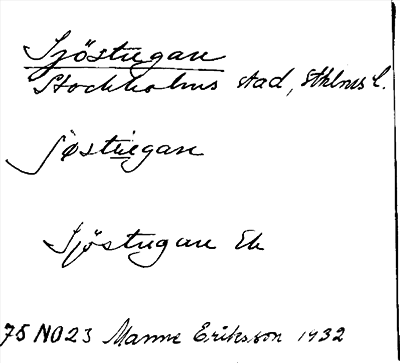 Sjöstugan
Stockholms stad, Sthlms l.
ʃøstugan
Sjöstugan Ek
75 NO23 Manne Eriksson 1932